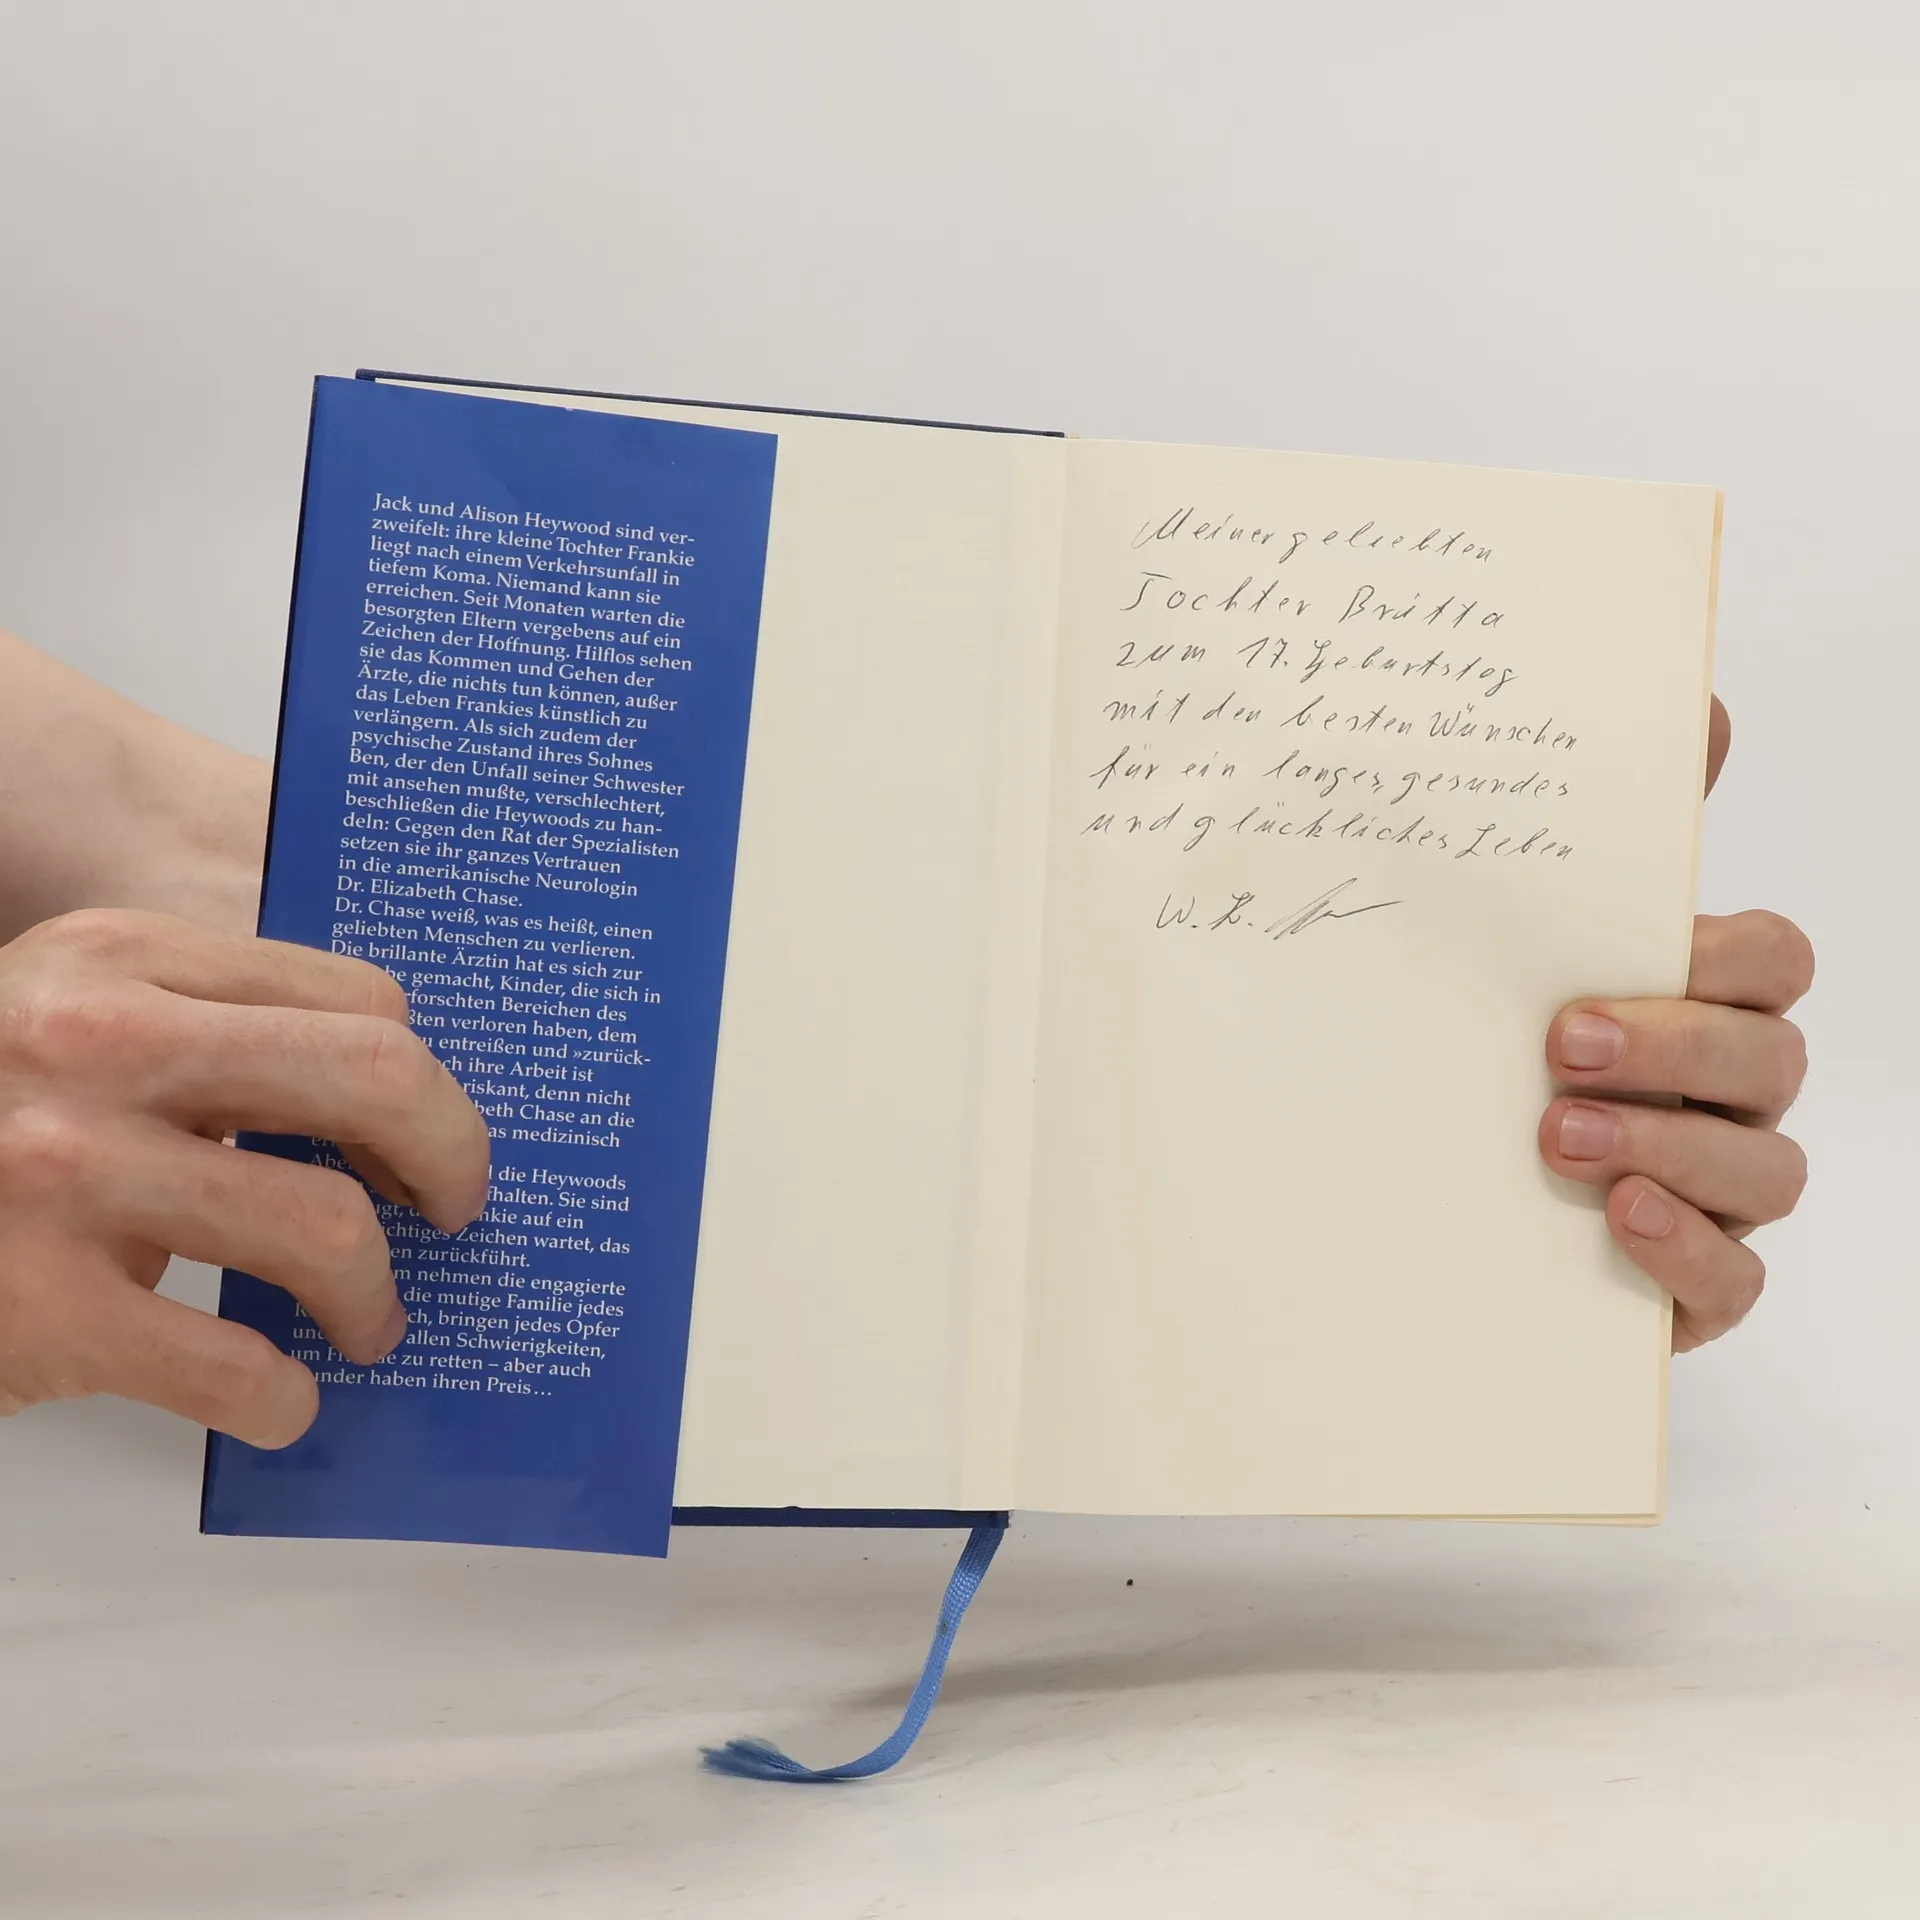 Jack und Alison Heywood sind ver-
zweifelt: ihre kleine Tochter Frankie
liegt nach einem Verkehrsunfall in
tiefem Koma. Niemand kann sie
erreichen. Seit Monaten warten die
besorgten Eltern vergebens auf ein
Zeichen der Hoffnung. Hilflos sehen
sie das Kommen und Gehen der
Ärzte, die nichts tun können, außer
das Leben Frankies künstlich zu
verlängern. Als sich zudem der
psychische Zustand ihres Sohnes
Ben, der den Unfall seiner Schwester
mit ansehen mußte, verschlechtert,
beschließen die Heywoods zu han-
deln: Gegen den Rat der Spezialisten
setzen sie ihr ganzes Vertrauen
in die amerikanische Neurologin
Dr. Elizabeth Chase.
Dr. Chase weiß, was es heißt, einen
geliebten Menschen zu verlieren.
Die brillante Ärztin hat es sich zur
be gemacht, Kinder, die sich in
rforschten Bereichen des
ßten verloren haben, dem
u entreißen und »zurück-
ch ihre Arbeit ist
riskant, denn nicht
beth Chase an die
as medizinisch
die Heywoods
fhalten. Sie sind
nkie auf ein
ichtiges Zeichen wartet, das
en zurückführt.
m nehmen die engagierte
die mutige Familie jedes
ich, bringen jedes Opfer
und allen Schwierigkeiten,
um zu retten – aber auch
under haben ihren Preis...
Meiner geliebten
Tochter Britta
zum 17. Geburtstag
mit den besten Wünschen
für ein langes, gesundes
und glückliches Leben
W. K.